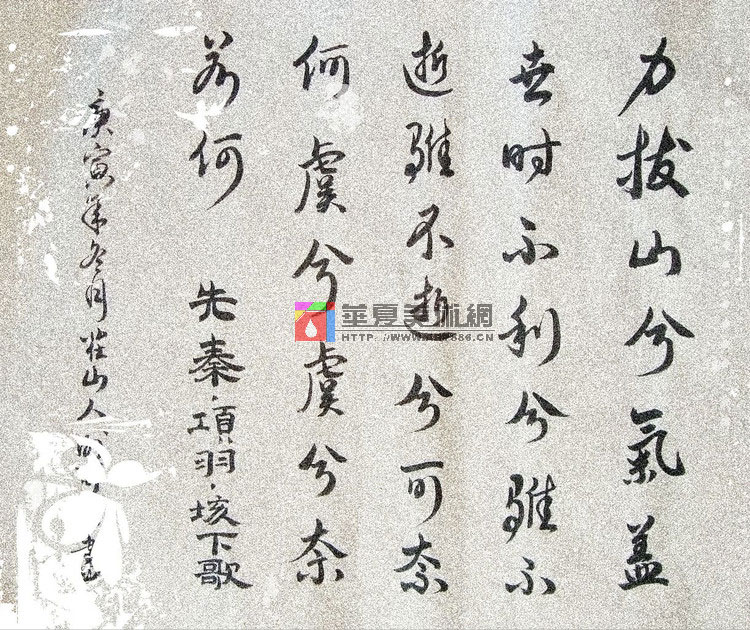 力拔山兮氣蓋
世时不利兮骓不
逝骓不逝兮可奈
何虞兮虞兮奈
若何
先秦·項羽·垓下歌
庚寅年冬月 山人 書
華夏美術網
HTTP://WWW. .CN